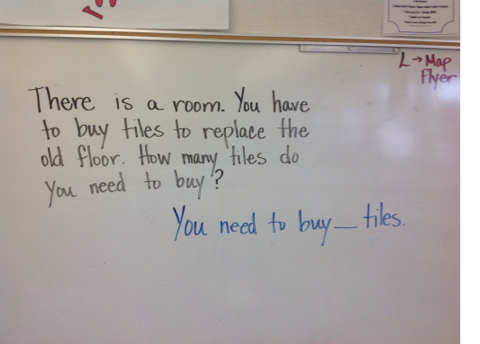 L → Map
Flyer
There is a room. You have
to buy tiles to replace the
old floor. How many tiles do
you need to buy?
You need to buy __ tiles.